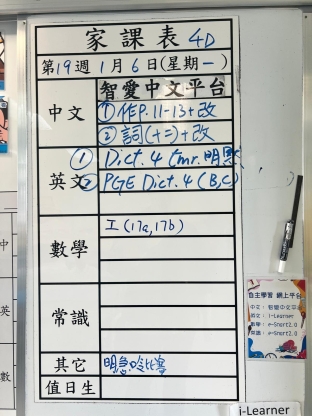 家課表 4D
第19週1月6日(星期一)
智愛中文平台
中文
①NEP.11-13+改
②詞(十二)+改
英文
① Dict. 4 (mr. 明默
② PGE Dict. 4 (B,C)
數學
工(17a,17b)
常識
其它
值日生
中
英
數
自主學習 網上平台
中文: 智愛中文平台
英文: i-Learner
數學: e-Smart2.0
常識: e-Smart2.0
i-Learner